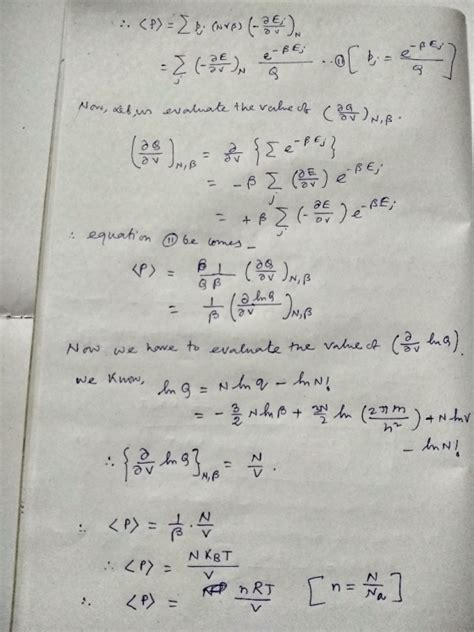 ∴ ⟨P⟩ = Σ pⱼ (N,V,β) (-∂Eⱼ/∂V)_N
= Σ_j (-∂E/∂V)_N e^{-βEⱼ}/Q ...⑪ [pⱼ = e^{-βEⱼ}/Q]
Now, let us evaluate the value of (∂Q/∂V)_{N,β}.
(∂Q/∂V)_{N,β} = ∂/∂V {Σ e^{-βEⱼ}}
= -β Σ_j (∂E/∂V) e^{-βEⱼ}
= +β Σ_j (-∂E/∂V) e^{-βEⱼ}
∴ equation ⑪ be comes_
⟨P⟩ = β/Q 1/β (∂Q/∂V)_{N,β}
= 1/β (∂lnQ/∂V)_{N,β}
Now we have to evaluate the value of (∂/∂V lnQ).
We Know, lnQ = N lnq - lnN!
= -3/2 N lnβ + 3N/2 ln (2πm/h²) + N lnV
- lnN!
∴ {∂/∂V lnQ}_{N,β} = N/V.
∴ ⟨P⟩ = 1/β · N/V
∴ ⟨P⟩ = NK_BT/V
∴ ⟨P⟩ = nRT/V [n = N/Na]